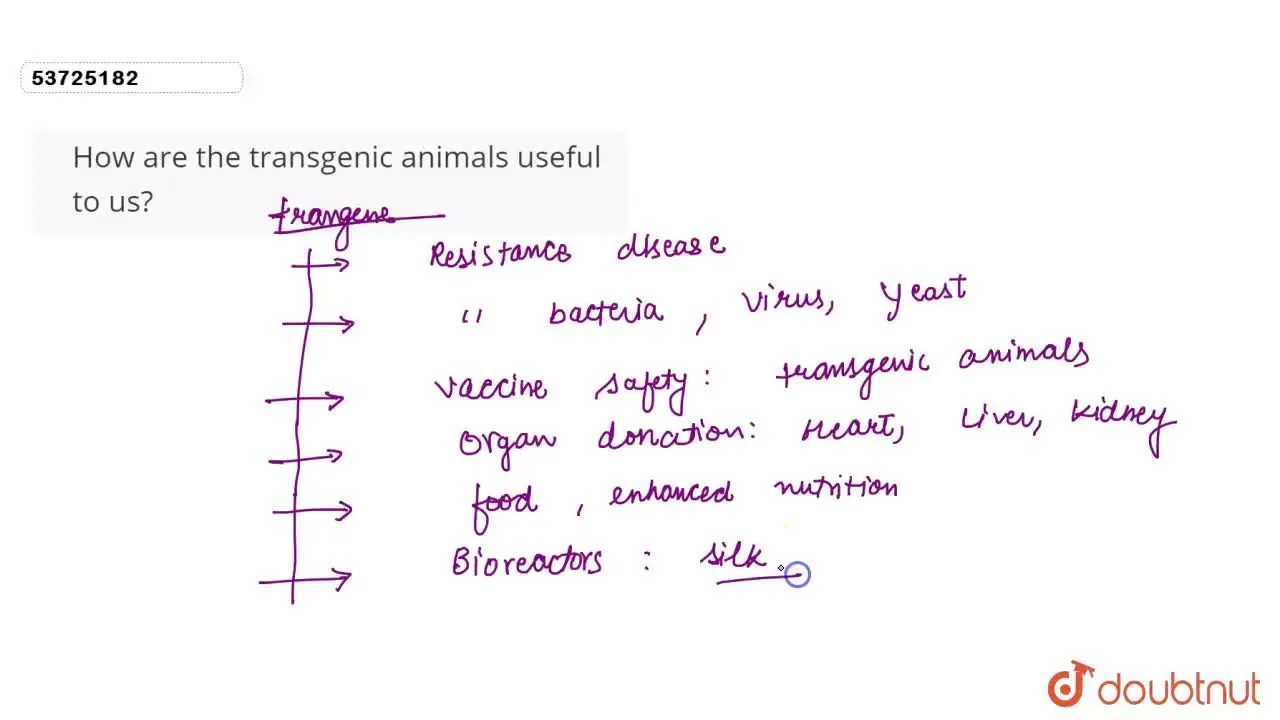 53725182
How are the transgenic animals useful
to us?
trangene
Resistance disease
" bacteria, virus, yeast
vaccine safety: transgenic animals
organ donation: Heart, Liver, kidney
food, enhanced nutrition
Bioreactors: silk
doubtnut